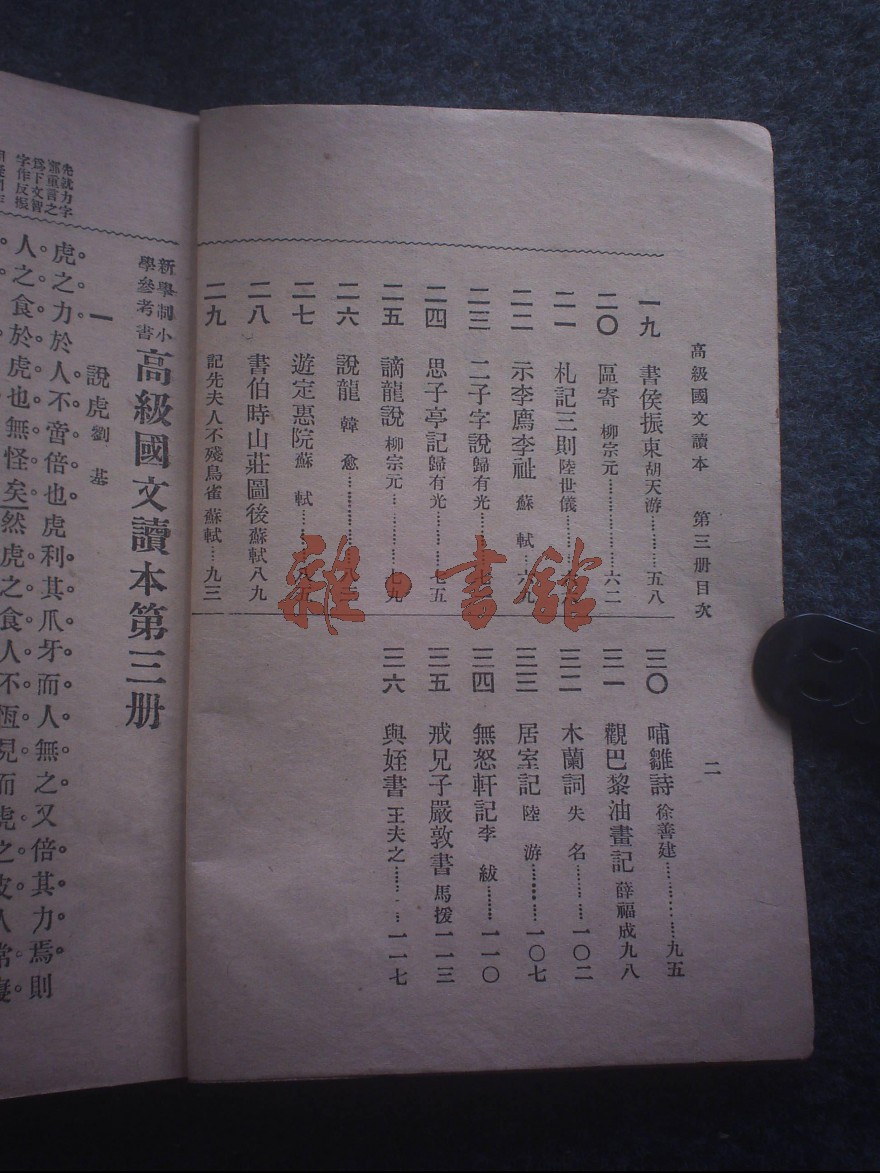 高級國文讀本　第三册目次
二
一九　書侯振東 胡天游………五八
二〇　區寄 柳宗元………六二
二一　札記三則 陸世儀………
二二　示李廌李祉 蘇軾………六九
二三　二子字說 歸有光………七
二四　思子亭記 歸有光………七五
二五　謫龍說 柳宗元………七九
二六　說龍 韓愈………八
二七　遊定惠院 蘇軾………八五
二八　書伯時山莊圖後 蘇軾 八九
二九　記先夫人不殘鳥雀 蘇軾……九三
三〇　哺雛詩 徐善建………九五
三一　觀巴黎油畫記 薛福成 九八
三二　木蘭詞 失名………一〇二
三三　居室記 陸游………一〇七
三四　無怒軒記 李紱………一一〇
三五　戒兄子嚴敦書 馬援 一一三
三六　與姪書 王夫之………一一七
雜·書館
新學制小學參考書 高級國文讀本第三册
一　說虎 劉基
先就力字
邪重言之
爲下文智
字作反振
虎之力於人不啻倍也。虎利其爪牙而人無之。又倍其力焉。則
人之食於虎也。無怪矣。然虎之食人不恆見。而虎之皮人常寢